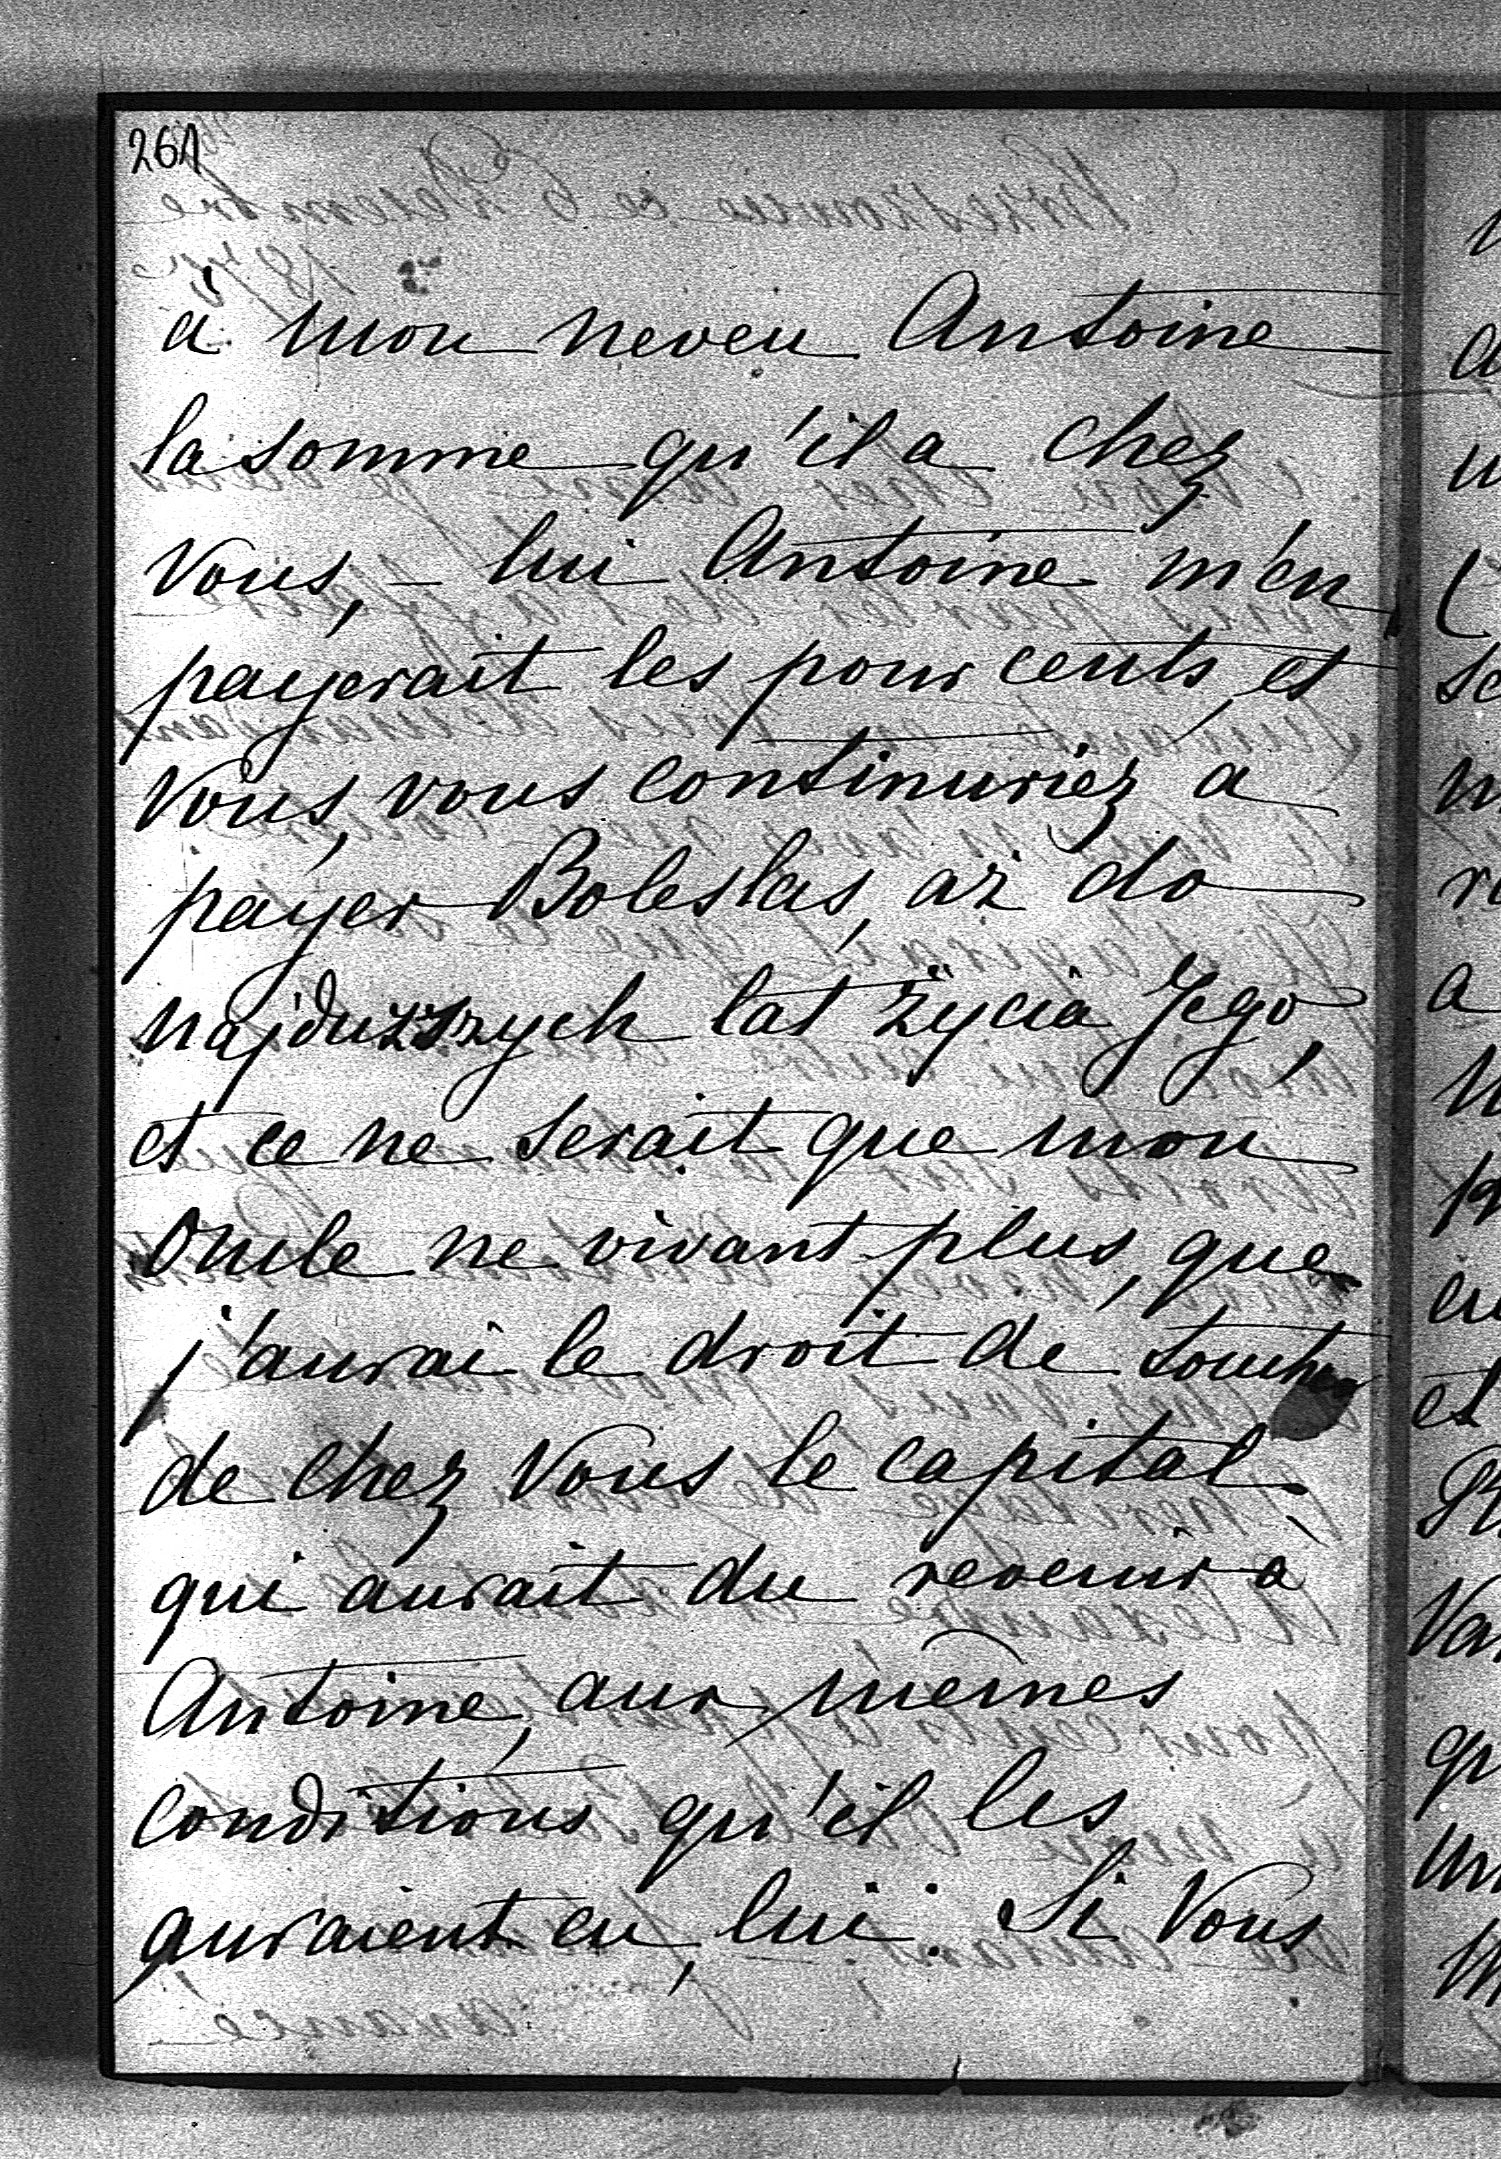 261
à mon neveu Antoine
la somme qu'il a chez
Vous, – lui Antoine m'en
payerait les pour cents, et
Vous, vous continuriez a
payer Boleslas, aż do
najduższych lat życia Jego,
et ce ne serait que mon
Oncle ne vivant plus, que
j'aurai le droit de toucher
de chez Vous le capital,
qui aurait du revenir a
Antoine, aux mêmes
conditions qu'il les
auraient eu, lui. Si Vous